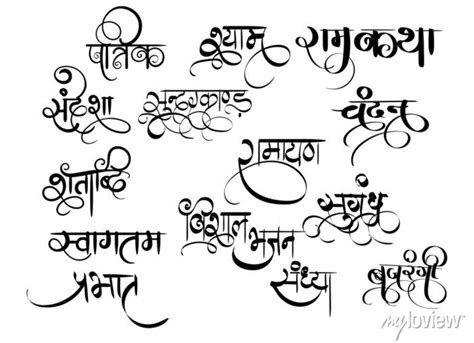 पत्रिक श्याम रामकथा
संदेशा सुन्दरकाण्ड चंदन
रामायण
शताब्दि सुगंध
विशाल
स्वागतम भजन
प्रभात संध्या बजरंगी
myloview